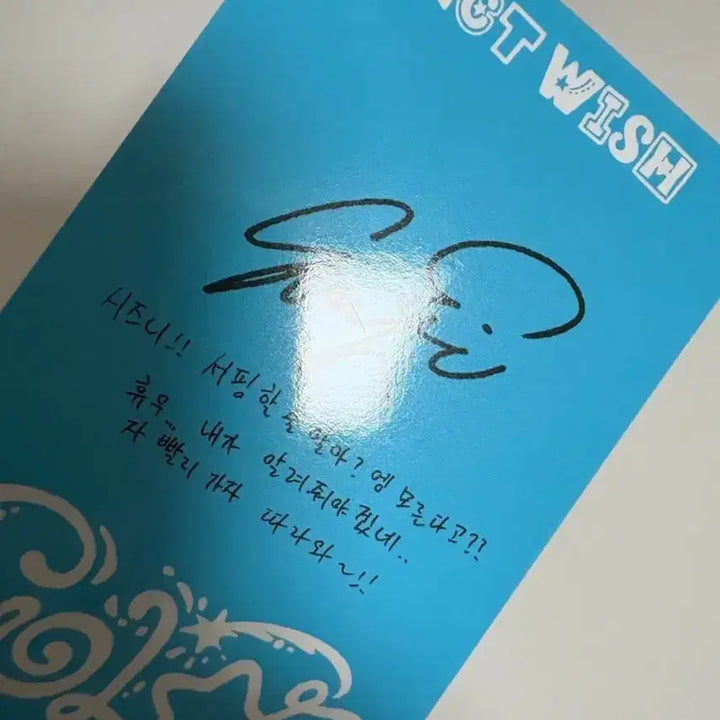 NCT WISH
시즈니!! 서핑할 줄 알아? 엥 모른다고??
휴우... 내가 알려줘야겠네..
자 빨리 가자 따라와~!!